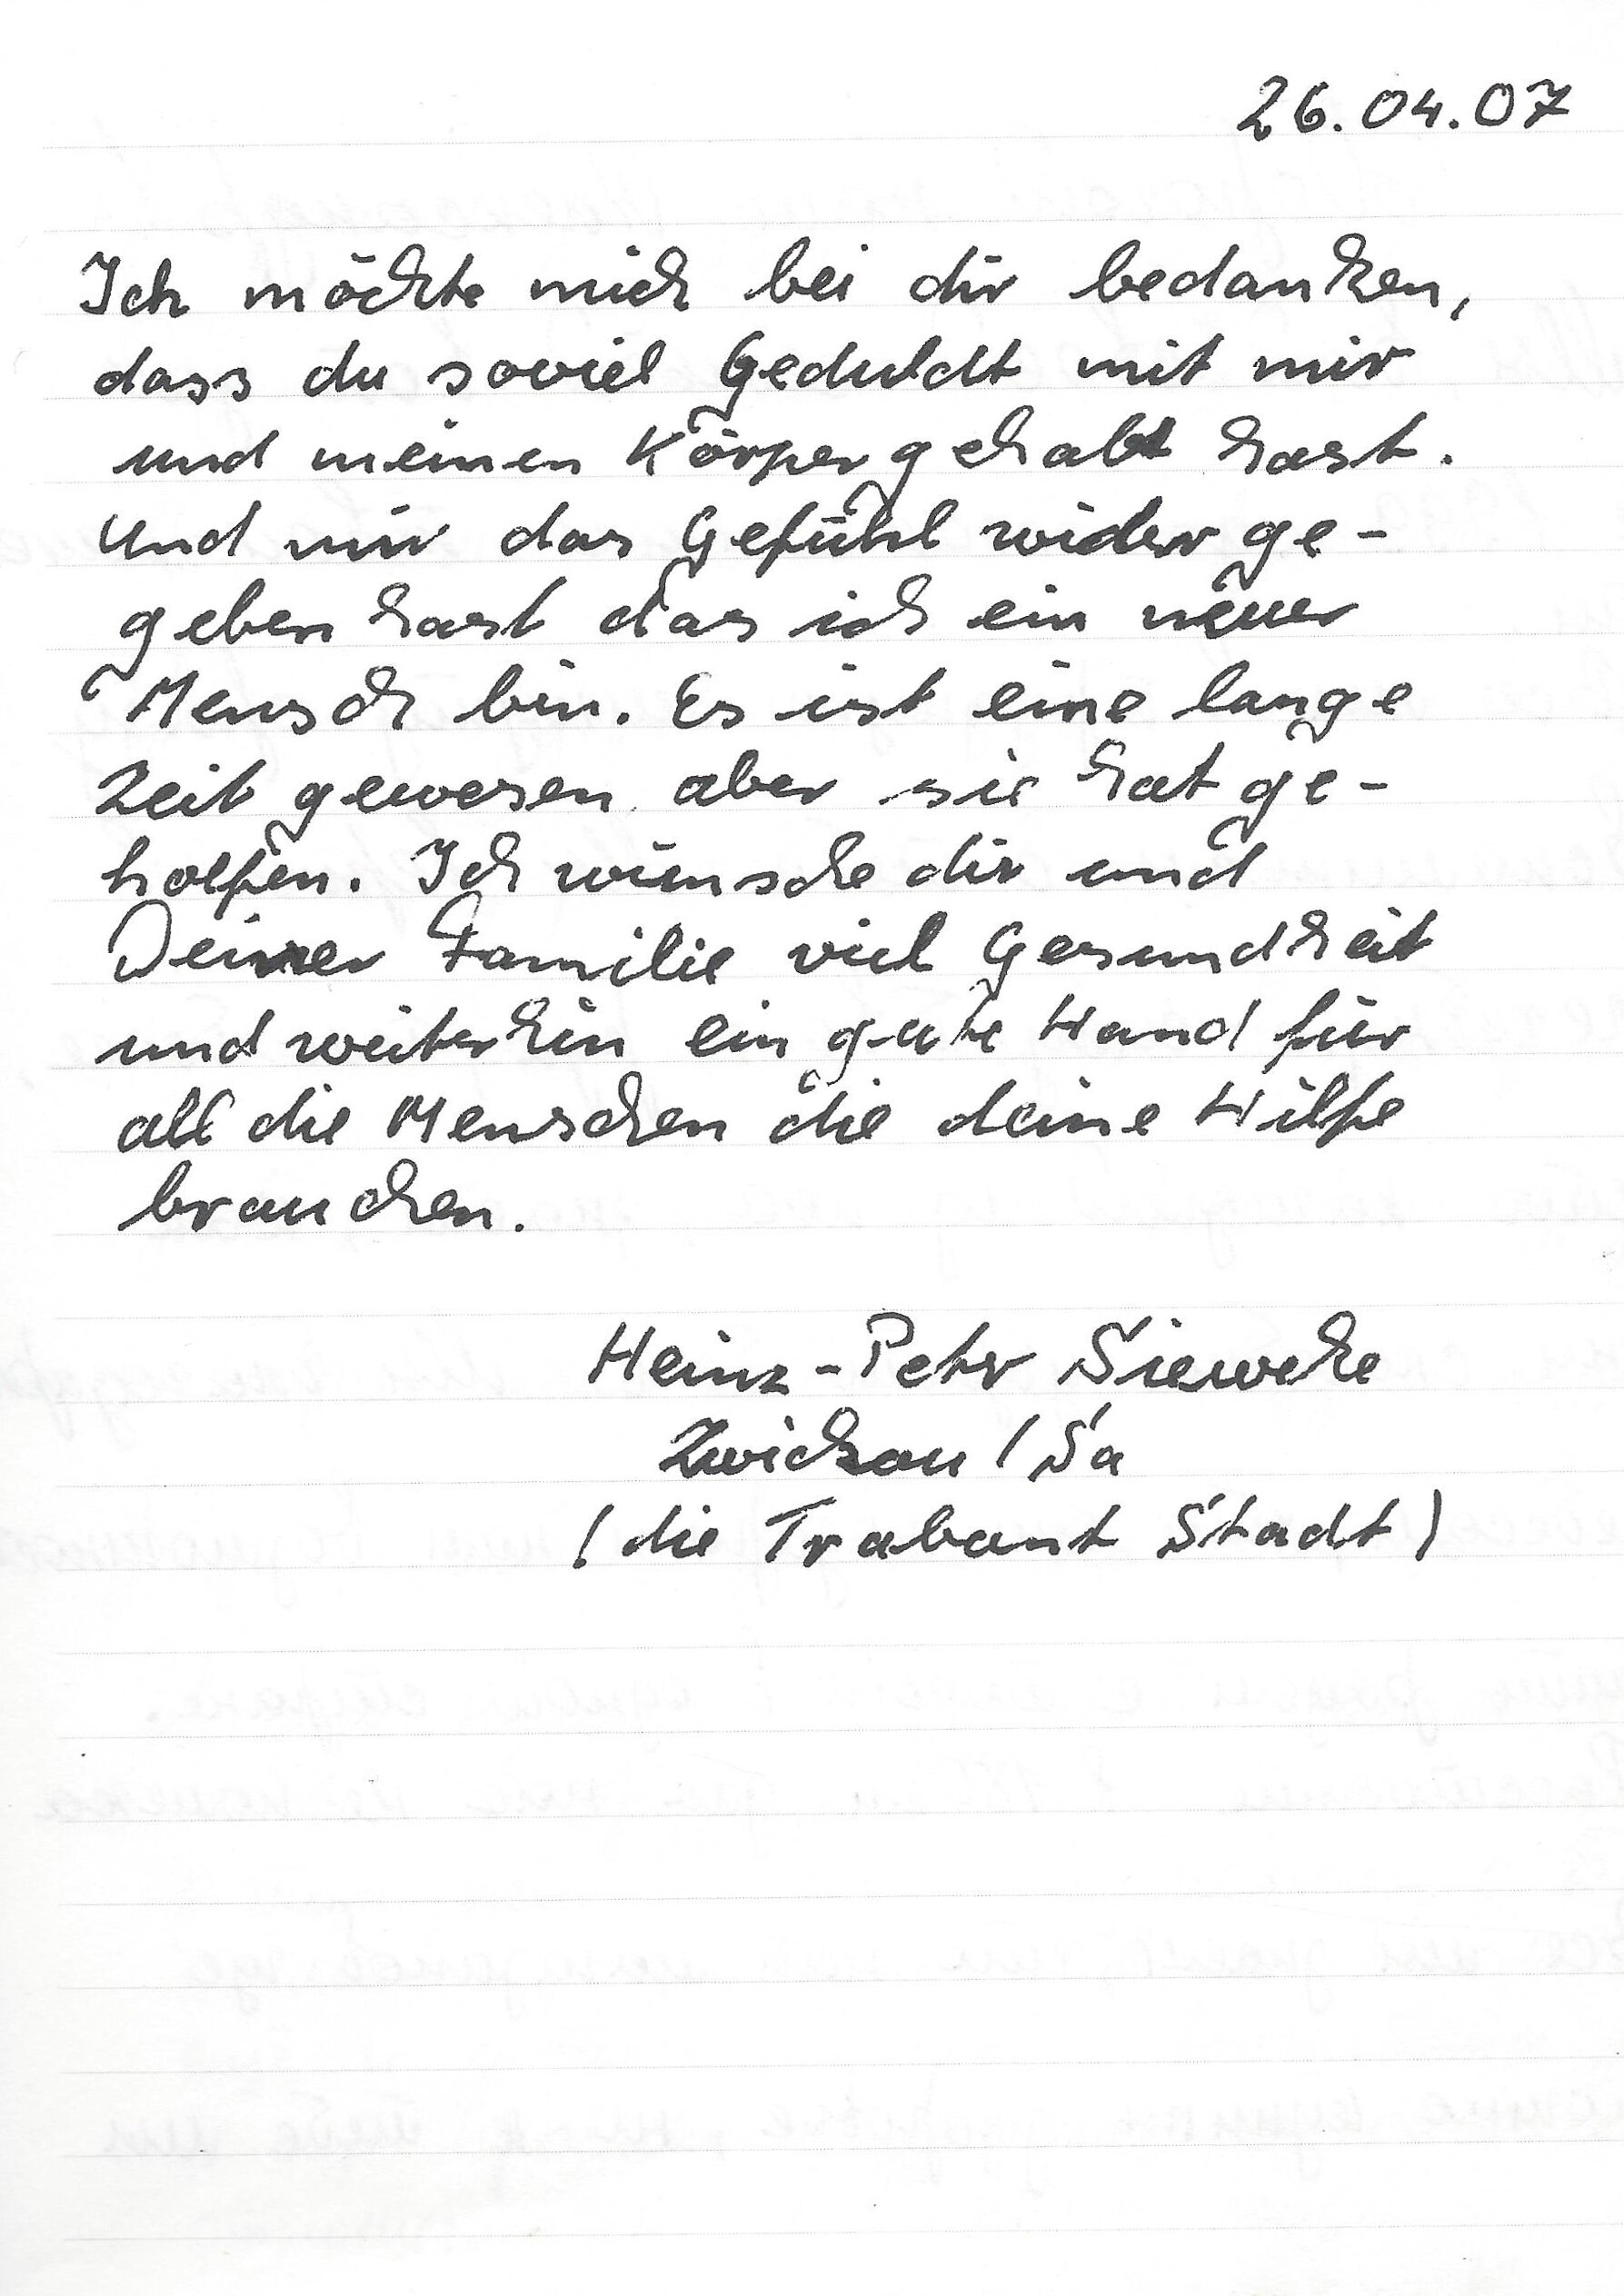 26.04.07
Ich möchte mich bei dir bedanken,
dass du soviel Geduldt mit mir
und meinen Körper gehabt hast.
Und mir das Gefühl wider ge-
geben hast das ich ein neuer
Mensch bin. Es ist eine lange
Zeit gewesen aber sie hat ge-
holfen. Ich wünsche dir und
Deiner Familie viel Gesundheit
und weiterhin ein gute Hand für
all die Menschen die deine Hilfe
brauchen.
Heinz-Peter Sieweke
Zwickau / Sa
(die Trabant Stadt)